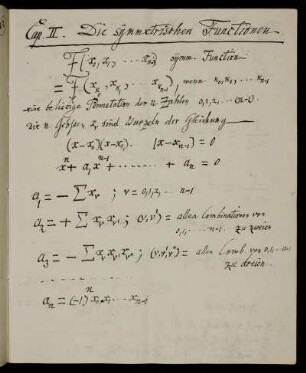 Cap. II. Die symmetrischen Functionen.
F(x₀, x₁, ... xₙ₋₁) symm. Function
= F(x_{κ₀}, x_{κ₁}, ... x_{κₙ₋₁}), wenn κ₀, κ₁, ... κₙ₋₁
eine beliebige Permutation der n Zahlen 0, 1, 2, ... (n-1).
Die n Größen xᵥ sind Wurzeln der Gleichung
(x-x₀)(x-x₁) . (x-xₙ₋₁) = 0
xⁿ + a₁xⁿ⁻¹ + ....... + aₙ = 0
a₁ = - Σ xᵥ ; v = 0, 1, 2, .. n-1
a₂ = + Σ xᵥ xᵥ' ; (v, v') = allen Combinationen von
0, 1, ... n-1. zu zweien
a₃ = - Σ xᵥ xᵥ' xᵥ'' ; (v, v', v'') = allen Comb. von 0, 1, .. n-1
zu dreien.
aₙ = (-1)ⁿ x₀ x₁ ... xₙ₋₁